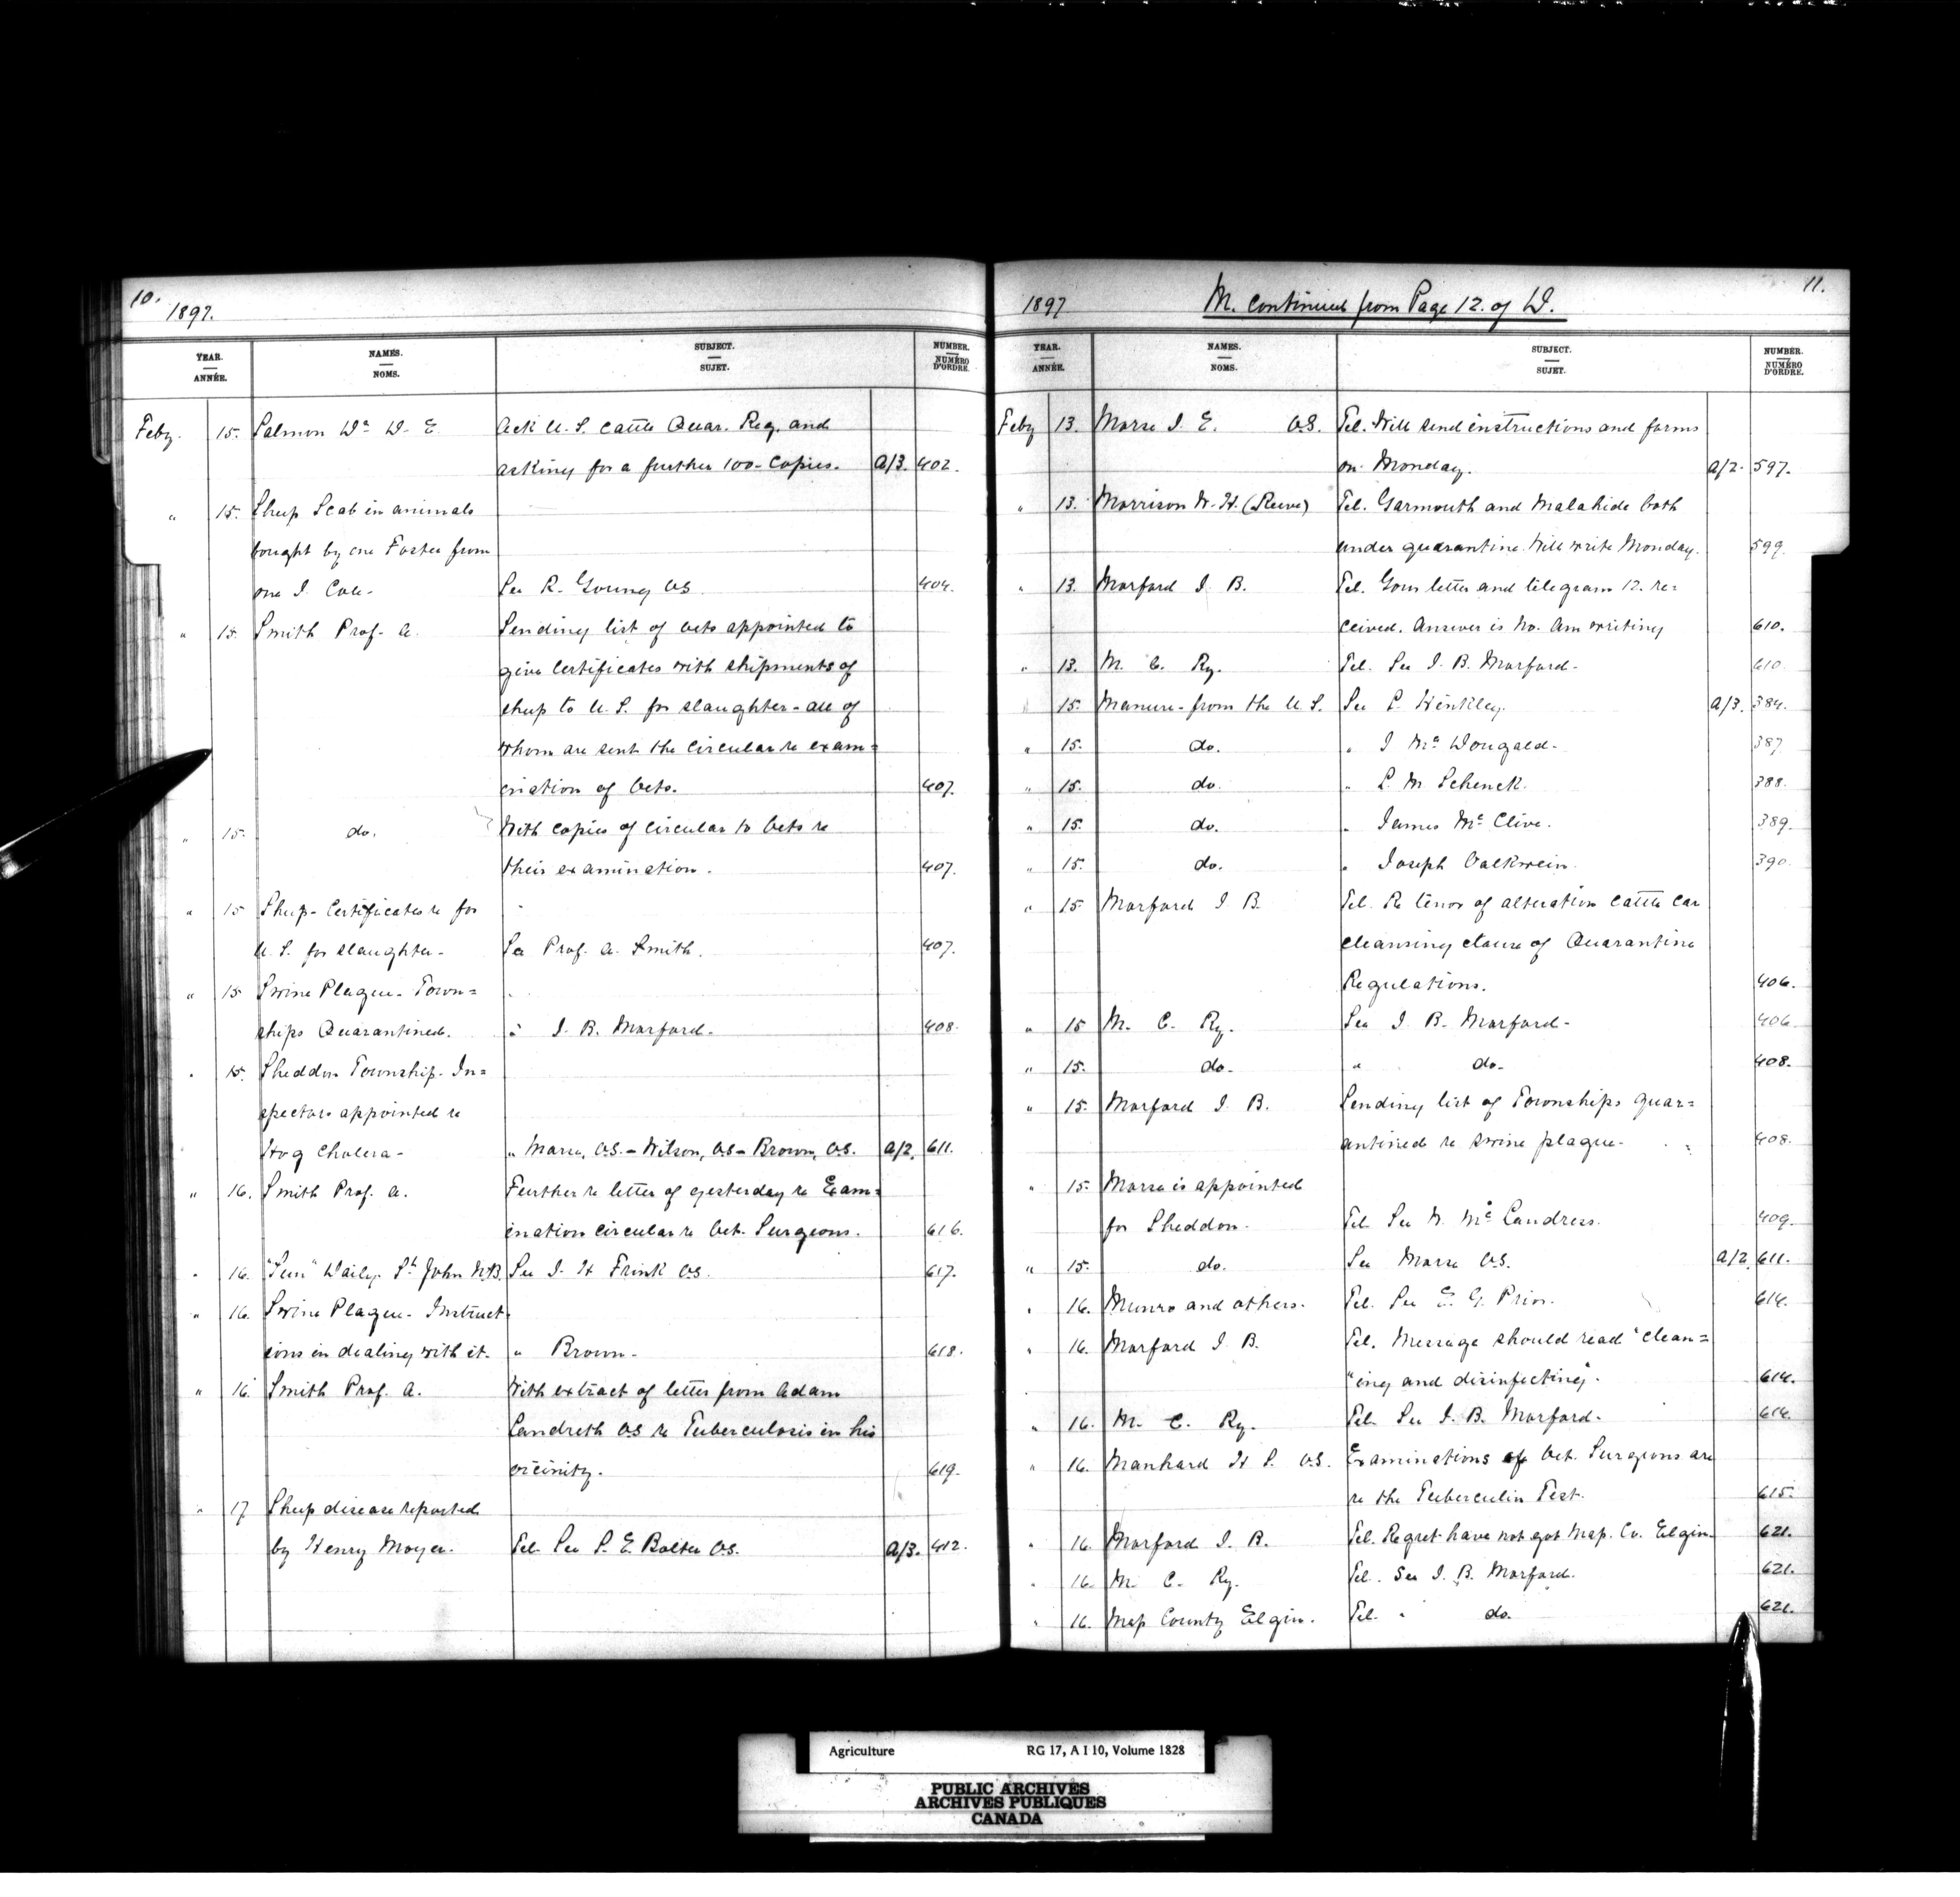 10.
1897.
YEAR. ANNÉE. NAMES. NOMS. SUBJECT. SUJET. NUMBER. NUMÉRO D'ORDRE.
Feby. 15. Salmon Dr D. E. Ack U. S. Cattle Quar. Reg. and
asking for a further 100 - Copies. A/3. 402.
" 15. Sheep Scab in animals
bought by one Foster from
one J. Cole - See R. Young V.S. 404.
" 15. Smith Prof. A. Sending list of Vets appointed to
give Certificates with shipments of
sheep to U. S. for slaughter - all of
whom are sent the Circular re exam=
ination of Vets. 407.
" 15. do. With copies of Circular to Vets re
their examination. 407.
" 15 Sheep - Certificates re for
U. S. for slaughter - See Prof. A. Smith. 407.
" 15 Swine Plague - Town=
ships Quarantined. " J. B. Morford - 408.
" 15. Sheddon Township - In=
spectors appointed re
Hog Cholera - " Morse, V.S. - Wilson, V.S - Brown, V.S. A/2. 611.
" 16. Smith Prof. A. Further re letter of yesterday re Exam=
ination Circular re Vet. Surgeons. 616.
" 16. "Sun" Daily St John N.B. See J. H Frink V.S. 617.
" 16. Swine Plague - Instruct
ions in dealing with it. " Brown - 618.
" 16. Smith Prof. A. With extract of letter from Adam
Landreth V.S re Tuberculosis in his
vicinity. 619.
" 17 Sheep disease reported
by Henry Moyer. Tel. See S. E. Bolter V.S. A/3. 412.
11.
1897 M. Continued from Page 12. of D.
YEAR. ANNÉE. NAMES. NOMS. SUBJECT. SUJET. NUMBER. NUMÉRO D'ORDRE.
Feby 13. Morse J. E. V.S. Tel. Will send instructions and forms
on Monday. A/2. 597.
" 13. Morrison W. H. (Reeve) Tel. Yarmouth and Malahide both
under quarantine. Will write Monday. 599.
" 13. Morford J. B. Tel. Your letter and telegram 12. re=
ceived. Answer is No. Am writing 610.
" 13. M. C. Ry. Tel. See J. B. Morford - 610
15. Manure - from the U. S. See P. Hinkley. A/3. 384.
" 15. do. " J Mc Dougald - 387
" 15. do. " L. M Schenck. 388.
" 15. do. " James Mc Clive. 389.
" 15. do. " Joseph 390.
" 15 Morford J B. Tel. Re tenor of alteration cattle car
cleansing clause of Quarantine
Regulations. 406.
" 15 M. C. Ry. See J. B. Morford - 406.
" 15. do - " do - 408.
" 15. Morford J. B. Sending list of Townships Quar=
antined re swine plague - 408.
" 15. Morse is appointed
for Sheddon. Tel. See N. Mc Candress. 409.
" 15. do. See Morse V.S. A/2. 611.
" 16. Munro and others. Tel. See E. G. Prior. 614.
" 16. Morford J. B. Tel. Message should read "clean=
"ing and disinfecting". 614.
" 16. M. C. Ry. Tel. See J. B. Morford - 614.
" 16. Manhard H S. V.S. Examinations of Vet. Surgeons are
re the Tuberculin Test. 615.
" 16. Morford J. B. Tel. Regret have not got Map. Co. Elgin. 621.
" 16. M. C. Ry. Tel. See J. B. Morford. 621.
" 16. Map County Elgin. Tel. " do. 621.
Agriculture RG 17, A I 10, Volume 1828
PUBLIC ARCHIVES
ARCHIVES PUBLIQUES
CANADA